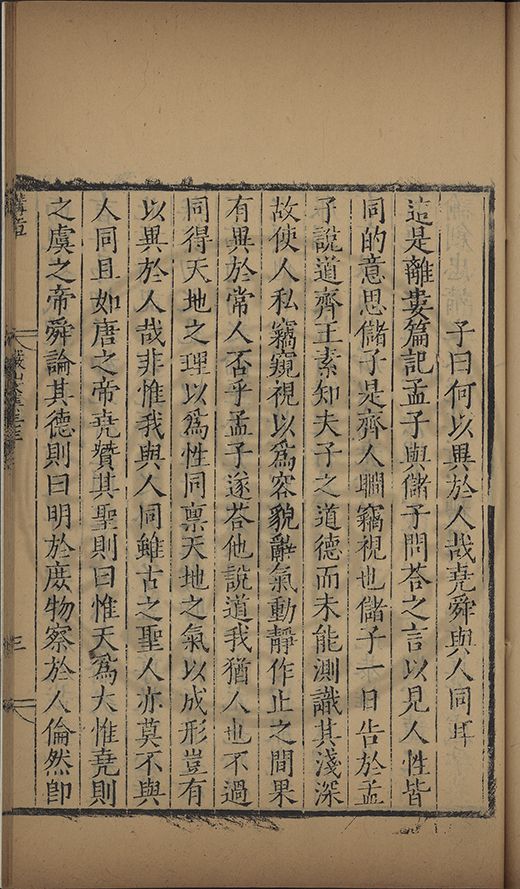 子曰何以異於人哉堯舜與人同耳
這是離婁篇記孟子與儲子問荅之言以見人性皆
同的意思儲子是齊人瞷竊視也儲子一日告於孟
子說道齊王素知夫子之道德而未能測識其淺深
故使人私竊窺視以爲容貌辭氣動靜作止之間果
有異於常人否乎孟子遂荅他說道我猶人也不過
同得天地之理以爲性同稟天地之氣以成形豈有
以異於人哉非惟我與人同雖古之聖人亦莫不與
人同且如唐之帝堯贊其聖則曰惟天爲大惟堯則
之虞之帝舜論其德則曰明於庶物察於人倫然卽
三